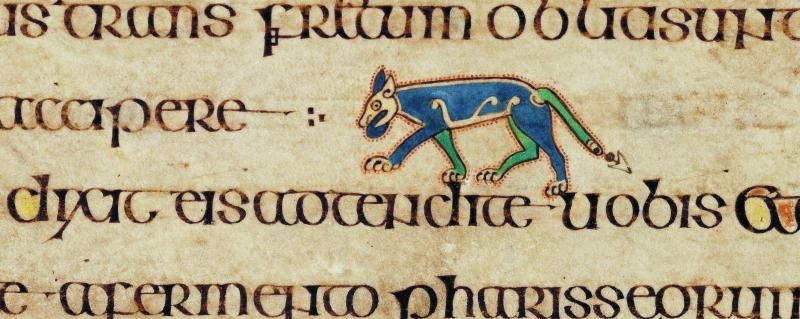 us trans fretum obliti sunt
accipere
dixit eis adtendite uobis &
e a fermento pharisseorum